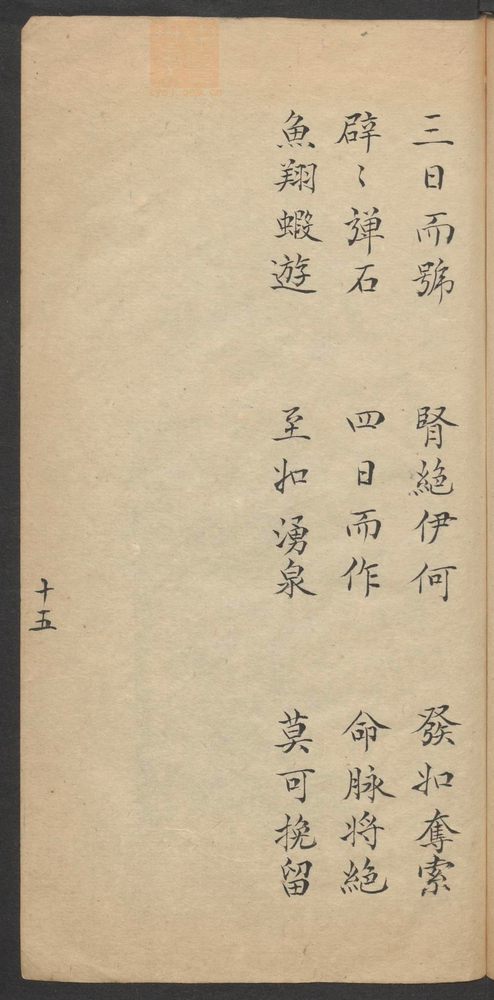 三日而號 腎絕伊何 發如奪索
辟〻弹石 四日而作 命脉将絕
魚翔蝦遊 至如湧泉 莫可挽留
十五